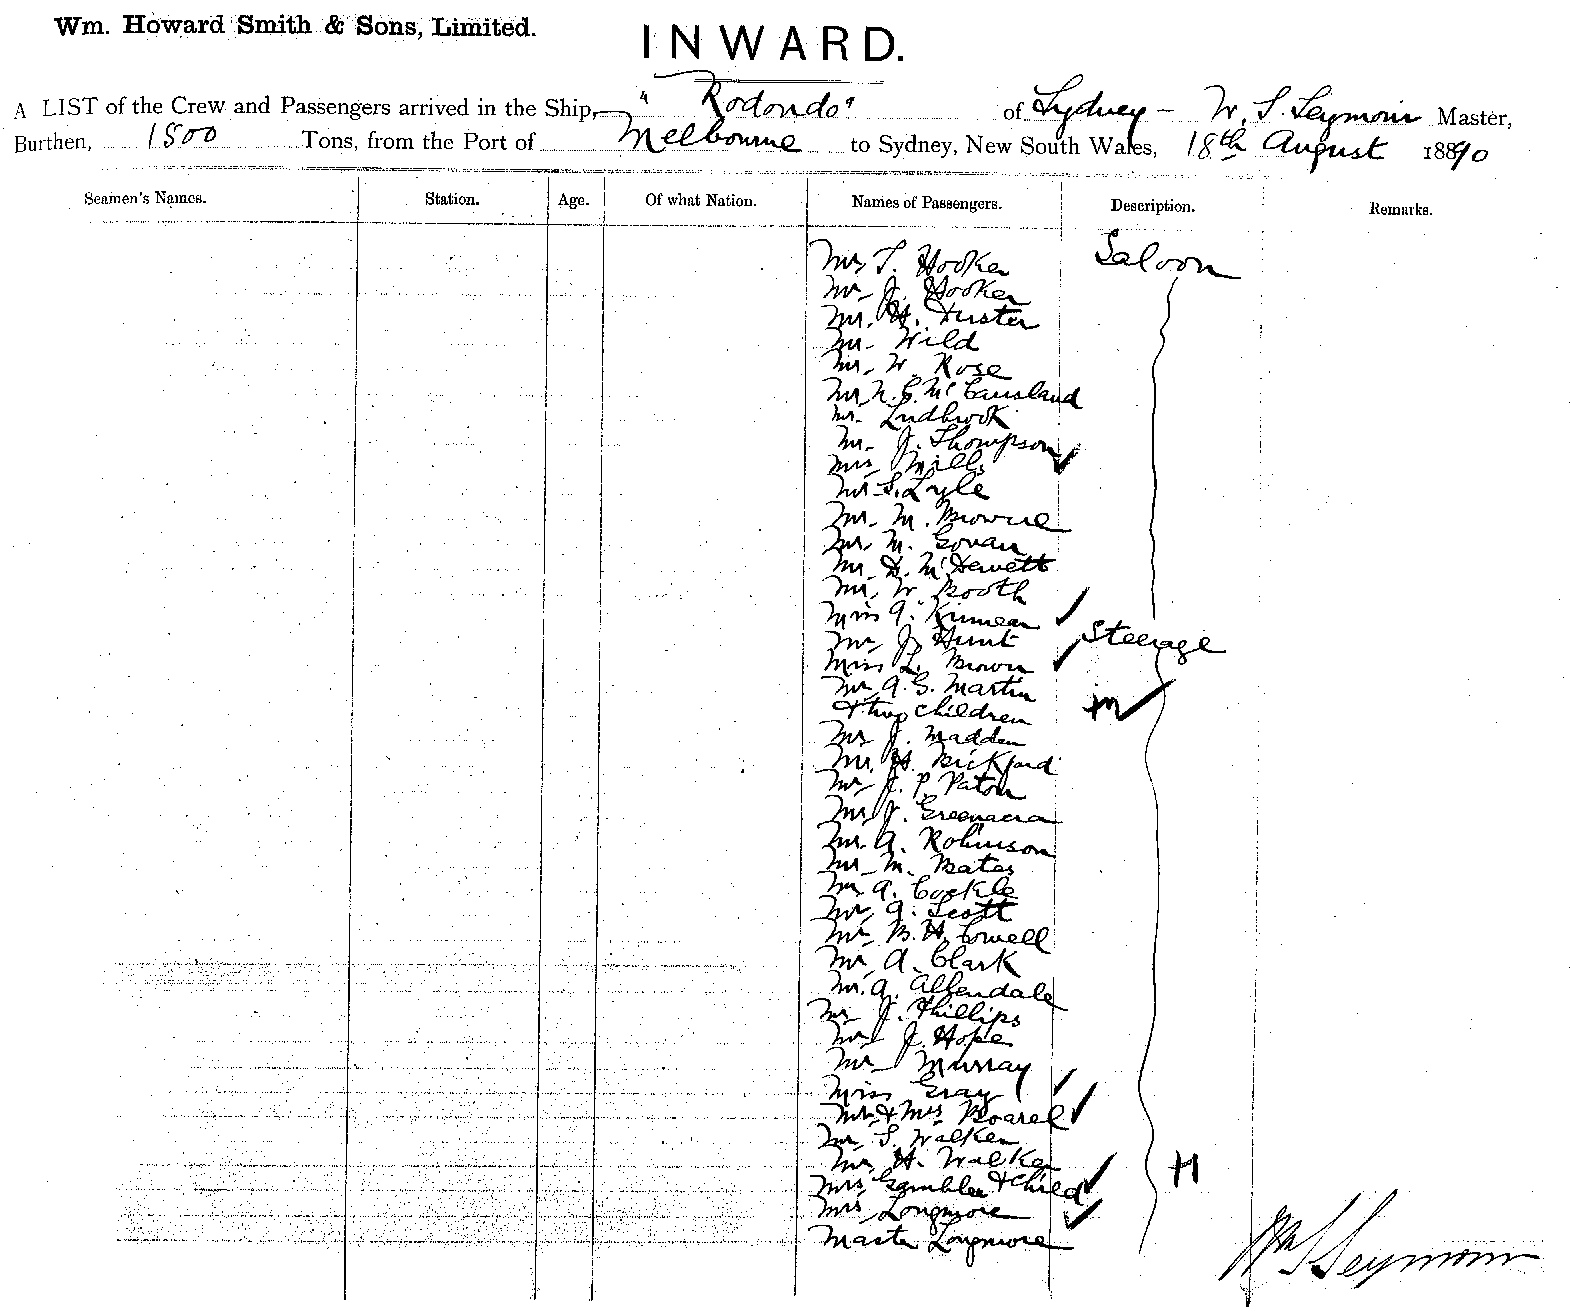 Wm. Howard Smith & Sons, Limited.
INWARD.
A LIST of the Crew and Passengers arrived in the Ship, "Rodondo" of Sydney - W. S. Seymour Master,
Burthen, 1500 Tons, from the Port of Melbourne to Sydney, New South Wales, 18th August 1890
Seamen's Names. Station. Age. Of what Nation. Names of Passengers. Description. Remarks.
Mr T. Hooker Saloon
Mr J. Hooker
Mr. H. Fuster
Mr Wild
Mr. W. Rose
Mr N. G. McCausland
Mr. Ludbrook
Mr. J. Thompson
Mrs Mills
Mr S. Lyle
Mr. M. Browne
Mr. M. Govan
Mr H. M. Hewett
Mr. W. Booth
Miss A. Kinnear
Mr J. Hunt Steerage
Miss L. Brown
Mr A. G. Martin
& two children m
Mr J. Madden
Mr. H. Bickford
Mr J. P. Paton
Mr J. Greenacre
Mr. A. Robinson
Mr M. Bates
Mr A. Cockle
Mr A. Scott
Mr B. H. Crowell
Mr A. Clark
Mr. A. Allendale
Mr J. Phillips
Mr J. Hope
Mr Murray
Miss Gray
Mr & Mrs Boarel
Mr S. Walker
Mr H. Walker H
Mrs Gambler & Child
Mrs Longmore
Master Longmore
Wm S Seymour